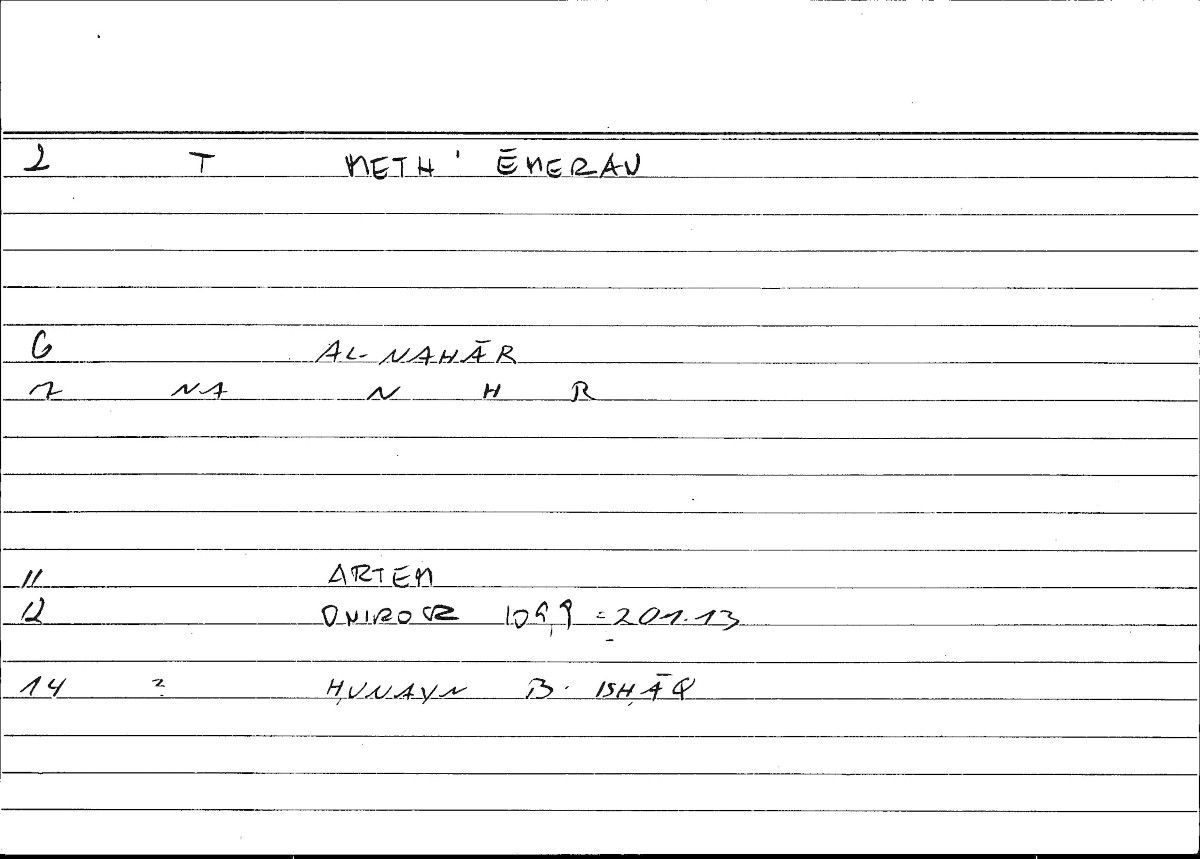 2 T METH' ĒMERAN
6 AL-NAHĀR
7 NA N H R
11 ARTEM
12 ONIROCR 109,9 = 201.13
14 ? ḤUNAYN B. ISḤĀQ